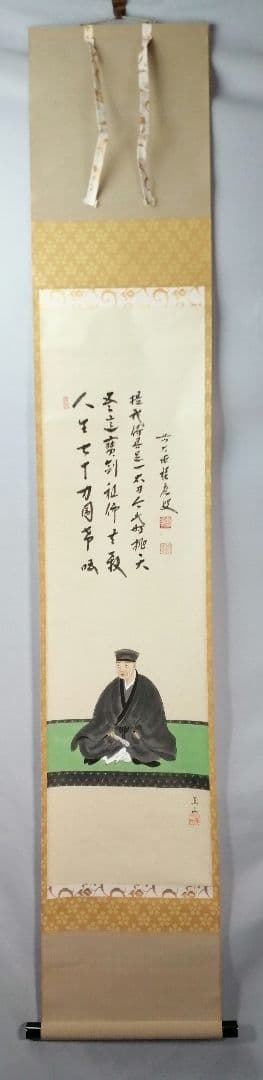 人生七十力囲希咄
吾這寶剣祖佛共殺
提我得具足一太刀今此時抛天
前大徳